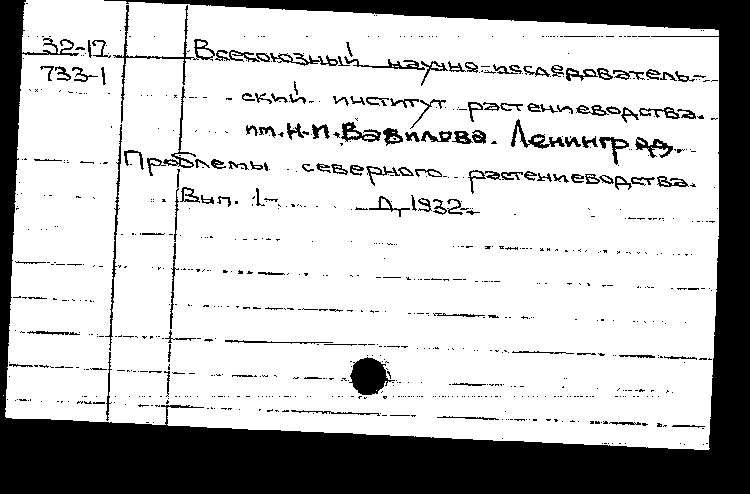 32-17 Всесоюзный научно-исследователь-
733-1 ский институт растениеводства.
им. Н.И. Вавилова. Ленинград.
Проблемы северного растениеводства.
Вып. 1- Л, 1932-